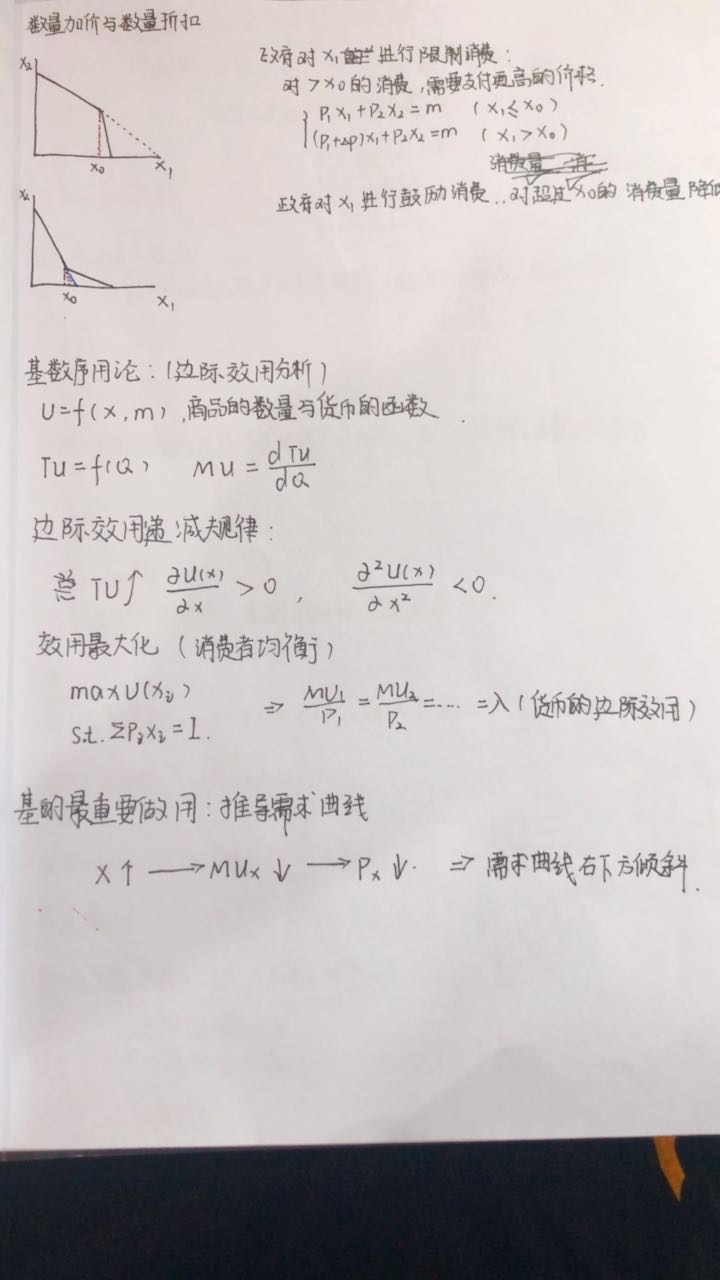 数量加价与数量折扣
x₂
x₀
x₁
政府对x₁进行限制消费:
对>x₀的消费,需要支付更高的价格.
P₁x₁+P₂x₂=m (x₁≤x₀)
(P₁+ΔP)x₁+P₂x₂=m (x₁>x₀)
x₂
x₀
x₁
政府对x₁进行鼓励消费..对超过x₀的消费量降低
基数序用论:(边际效用分析)
U=f(x,m),商品的数量与货币的函数.
TU=f(Q) MU=dTU/dQ
边际效用递减规律:
总TU↑ ∂U(x)/∂x>0, ∂²U(x)/∂x²<0.
效用最大化(消费者均衡)
maxU(xᵢ)
s.t. ΣPᵢxᵢ=I.
⇒ MU₁/P₁=MU₂/P₂=....=λ(货币的边际效用)
基的最重要做用:推导需求曲线
X↑→MUx↓→Px↓. ⇒需求曲线右下方倾斜.